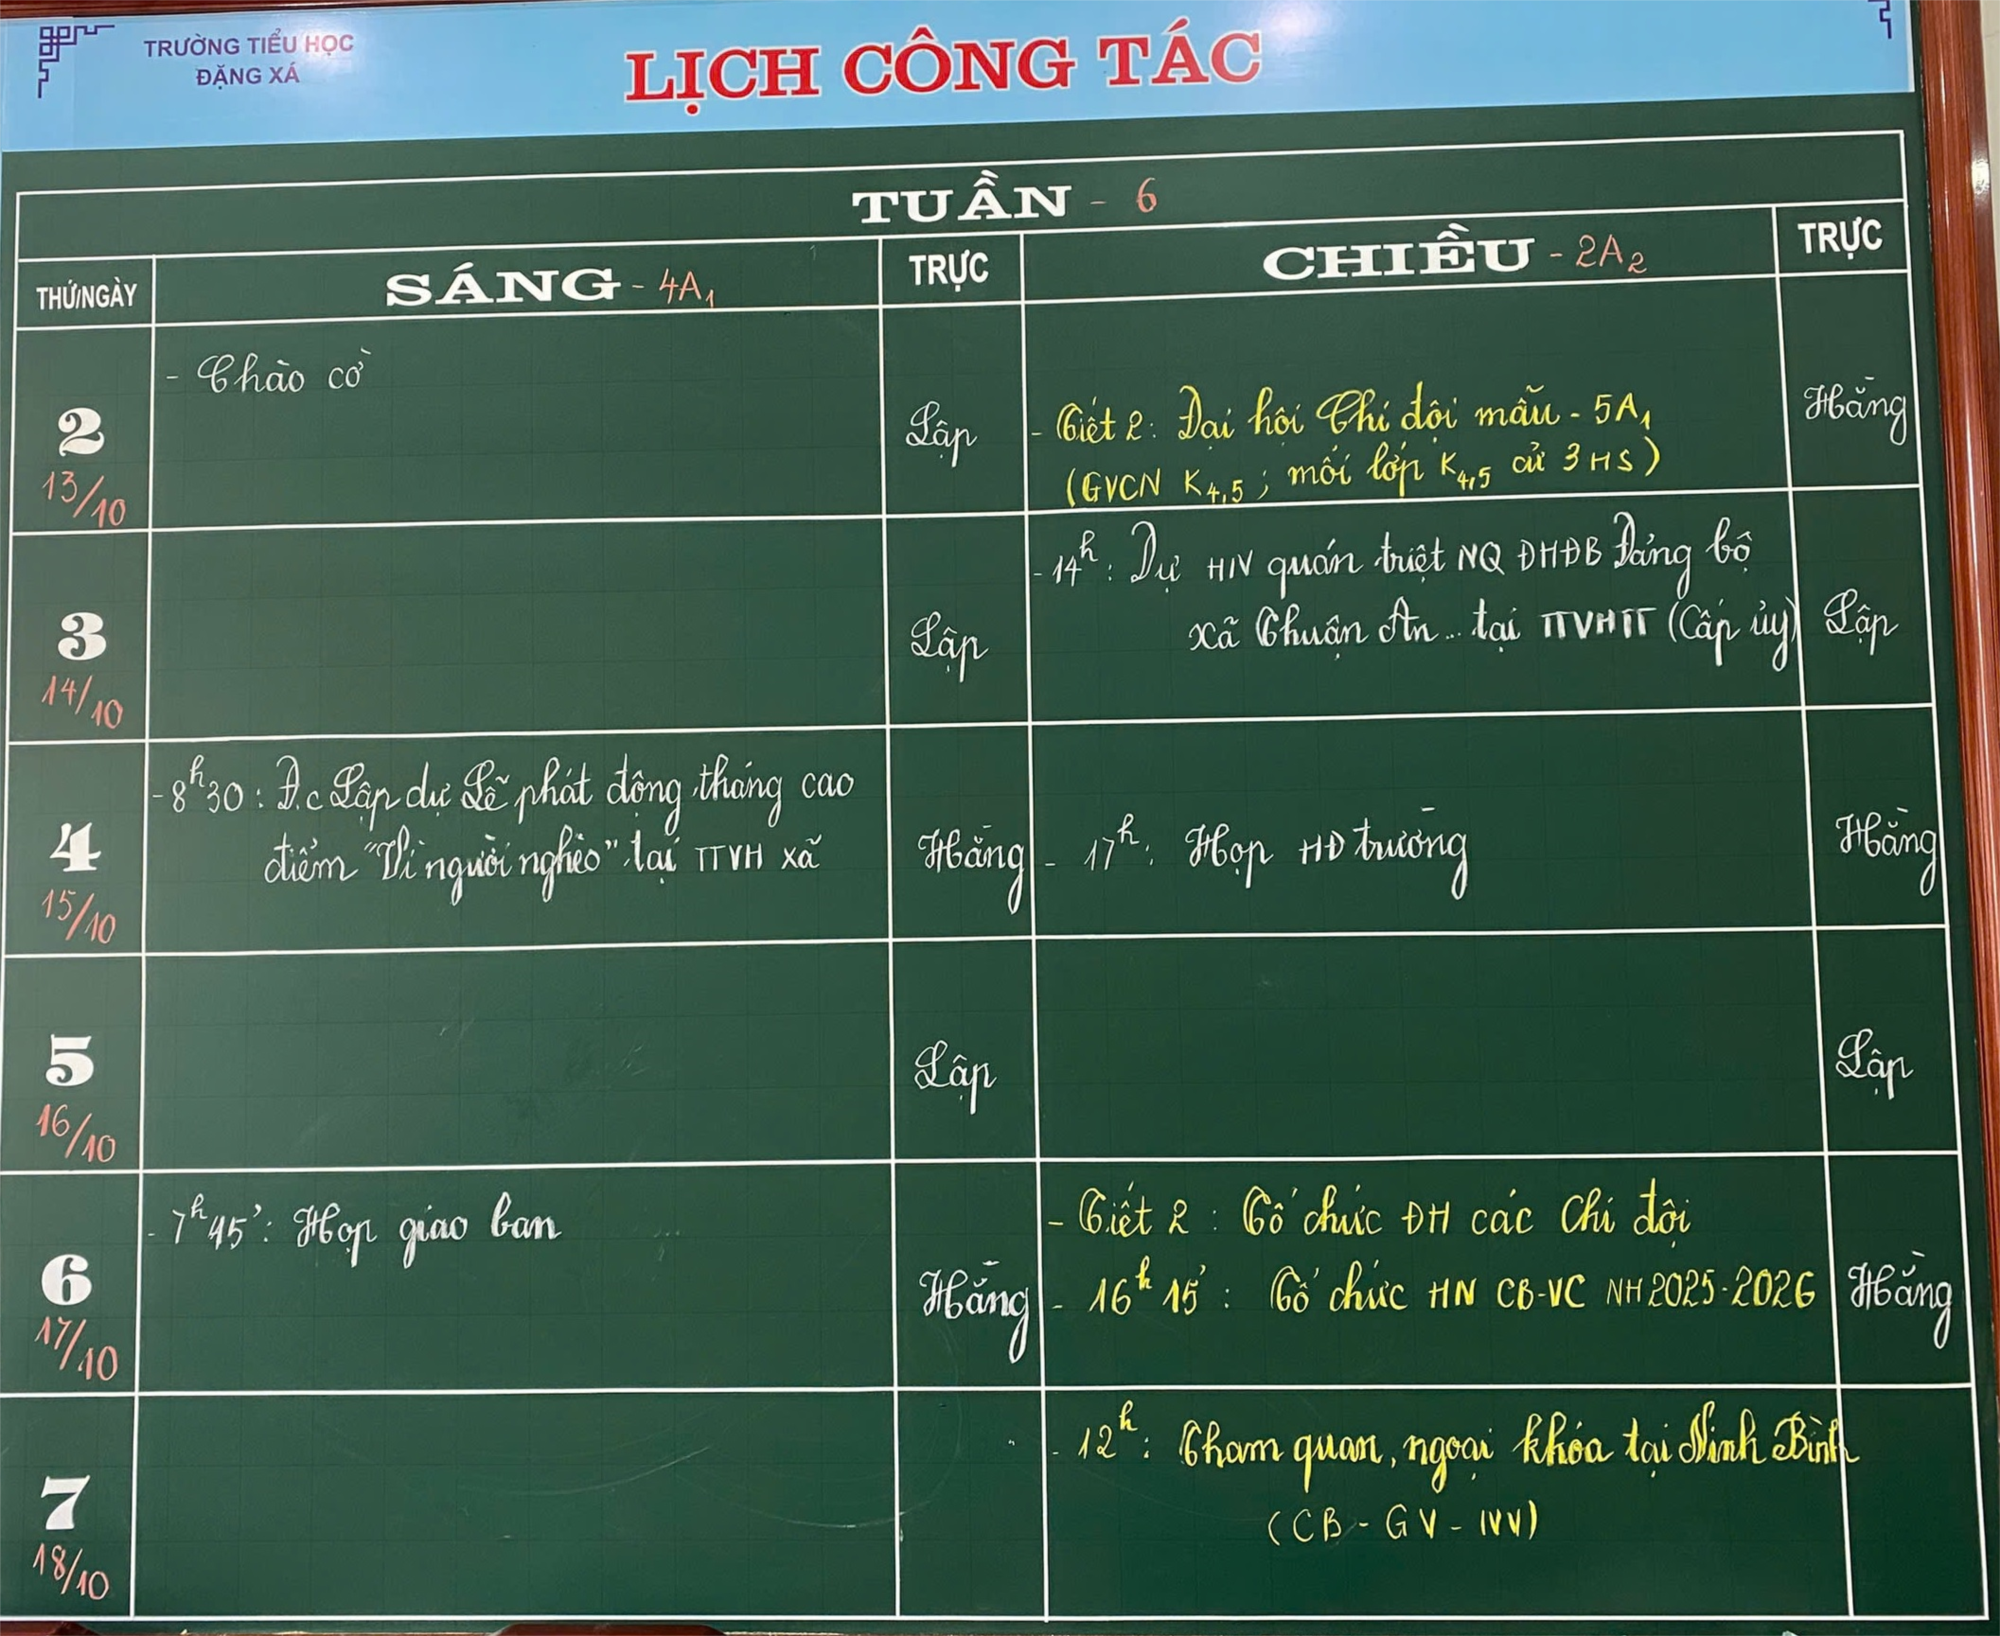 TRƯỜNG TIỂU HỌC
ĐẶNG XÁ
LỊCH CÔNG TÁC
TUẦN - 6
THỨ/NGÀY
SÁNG - 4A1
TRỰC
CHIỀU - 2A2
TRỰC
2
13/10
- Chào cờ
Lập
- Tiết 2: Đại hội Chi đội mẫu - 5A1
(GVCN K4,5 ; mỗi lớp K4,5 cử 3 HS)
Hằng
3
14/10
Lập
- 14h: Dự HN quán triệt NQ ĐHĐB Đảng bộ
xã Thuận An... tại TTVHTT (Cấp ủy)
Lập
4
15/10
- 8h30: Đ.c Lập dự Lễ phát động tháng cao
điểm "Vì người nghèo" tại TTVH xã
Hằng
- 17h: Họp HĐ trường
Hằng
5
16/10
Lập
Lập
6
17/10
- 7h45': Họp giao ban
Hằng
- Tiết 2: Tổ chức ĐH các Chi đội
- 16h15': Tổ chức HN CB-VC NH 2025-2026
Hằng
7
18/10
- 12h: Tham quan, ngoại khóa tại Ninh Bình
(CB - GV - NV)